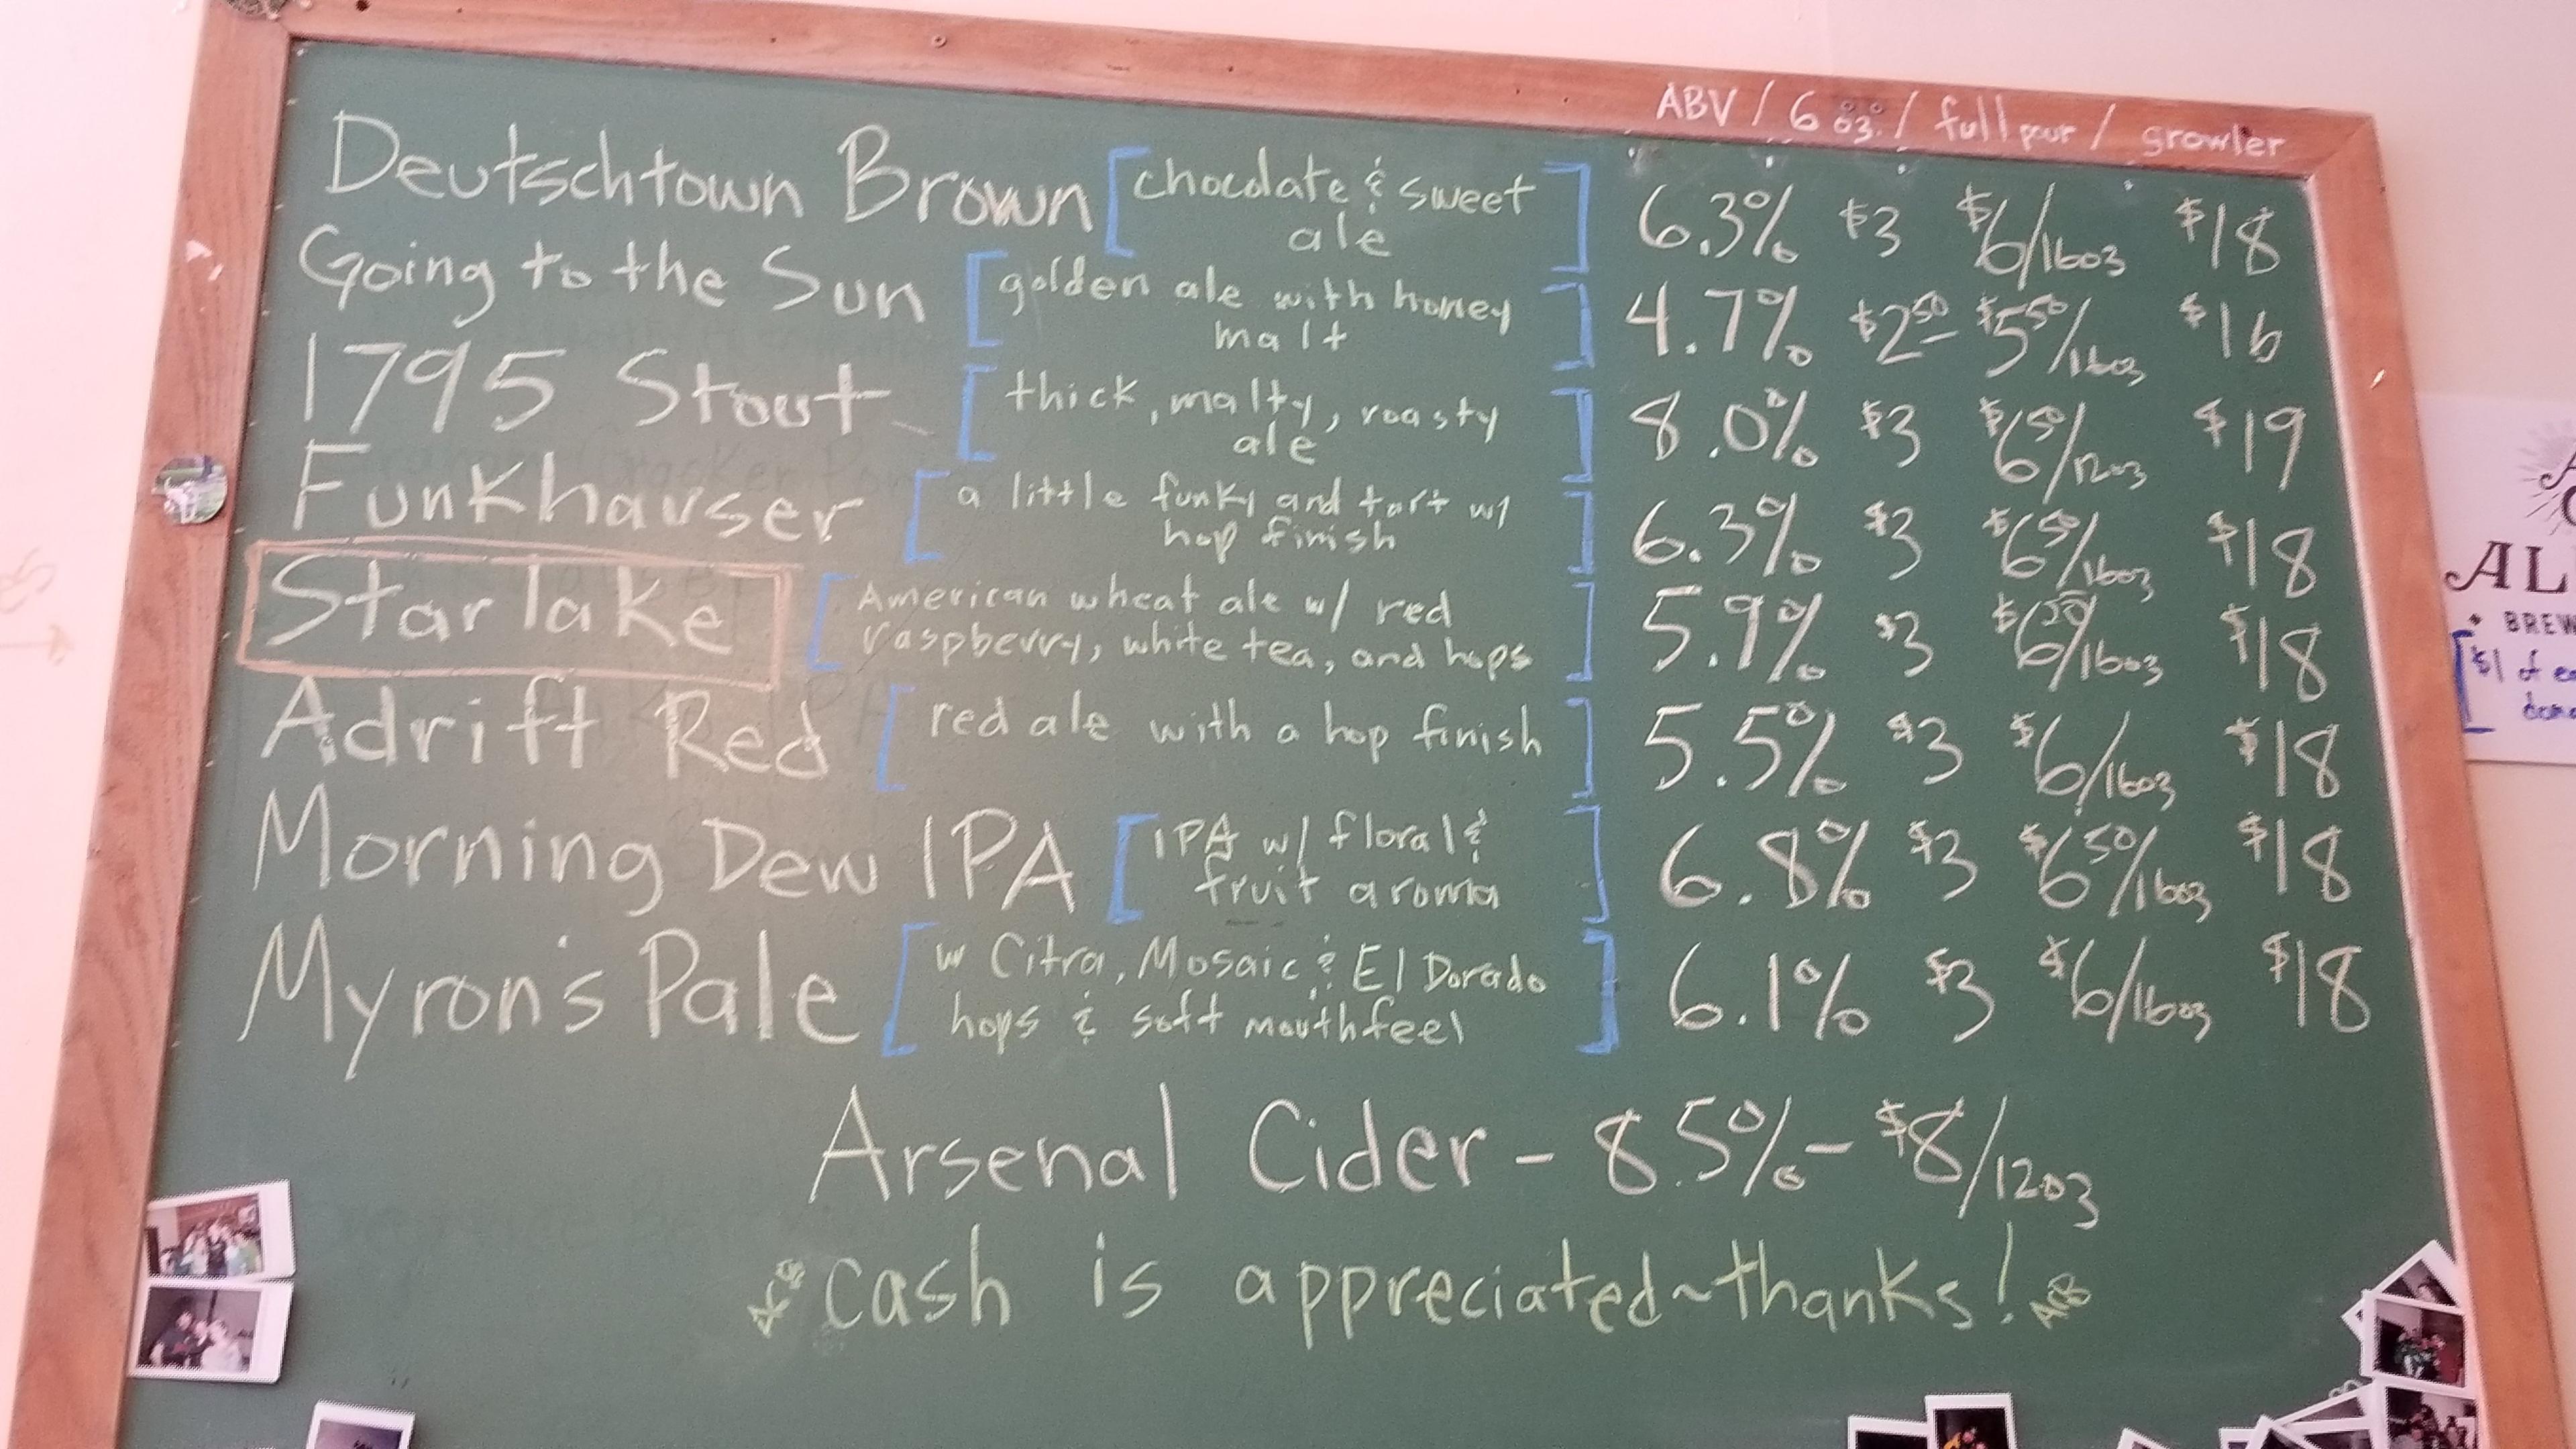 ABV / 6 oz. / full pour / growler
Deutschtown Brown [chocolate & sweet ale] 6.3% $3 $6/16oz $18
Going to the Sun [golden ale with honey malt] 4.7% $2.50 $5.50/16oz $16
1795 Stout [thick, malty, roasty ale] 8.0% $3 $6.50/12oz $19
Funkhauser [a little funky and tart w/ hop finish] 6.3% $3 $6.50/16oz $18
Starlake [American wheat ale w/ red raspberry, white tea, and hops] 5.9% $3 $6.50/16oz $18
Adrift Red [red ale with a hop finish] 5.5% $3 $6/16oz $18
Morning Dew IPA [IPA w/ floral & fruit aroma] 6.8% $3 $6.50/16oz $18
Myron's Pale [w Citra, Mosaic & El Dorado hops & soft mouthfeel] 6.1% $3 $6/16oz $18
Arsenal Cider - 8.5% - $8/12oz
cash is appreciated~thanks!
AL
BREW
[$1 of